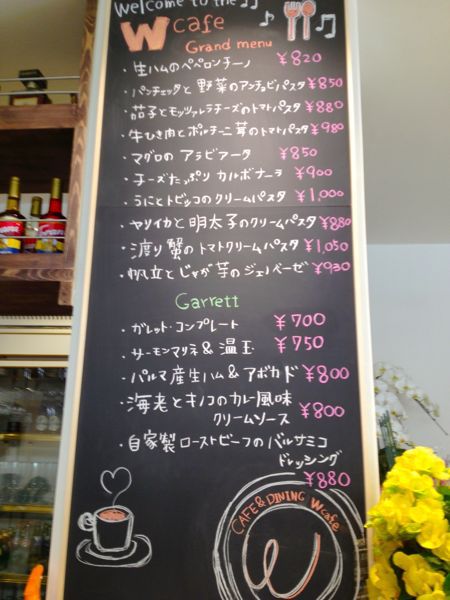 Welcome to the
W cafe
Grand menu
・生ハムのペペロンチーノ ¥820
・パンチェッタと野菜のアンチョビパスタ ¥850
・茄子とモッツァレラチーズのトマトパスタ ¥880
・牛ひき肉とポルチーニ茸のトマトパスタ ¥980
・マグロの アラビアータ ¥850
・チーズたっぷり カルボナーラ ¥900
・うにとトビッコのクリームパスタ ¥1,000
・ヤリイカと明太子のクリームパスタ ¥880
・渡り蟹のトマトクリームパスタ ¥1,050
・帆立とじゃが芋のジェノベーゼ ¥930
Garrett
・ガレット・コンプレート ¥700
・サーモンマリネ&温玉 ¥750
・パルマ産生ハム&アボカド ¥800
・海老とキノコのカレー風味
クリームソース ¥800
・自家製ローストビーフのバルサミコ
ドレッシング
¥880
CAFE & DINING W cafe
W